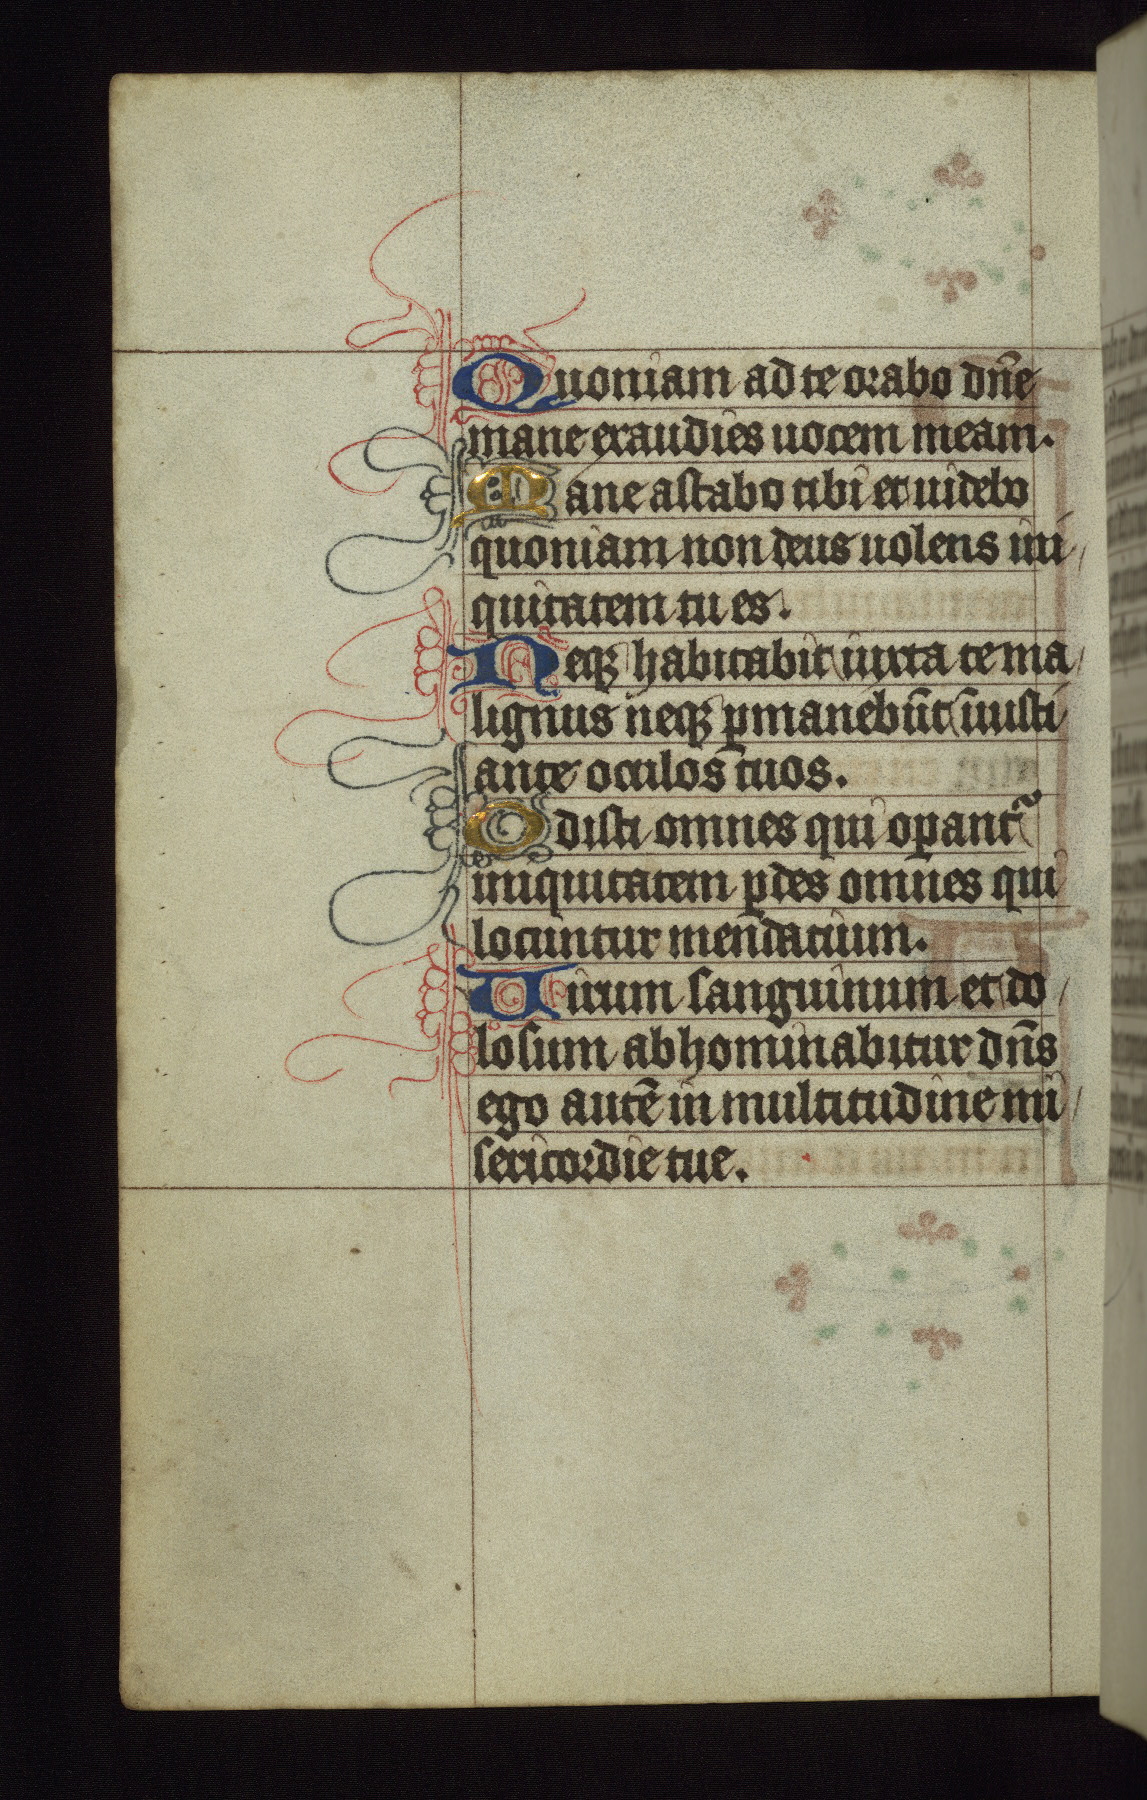 Quoniam ad te orabo dn̄e
mane exaudies uocem meam.
Mane astabo tibi et uidebo
quoniam non deus uolens ini
quitatem tu es.
Neqꝫ habitabit iuxta te ma
lignus neqꝫ ꝑmanebūt iniusti
ante oculos tuos.
Odisti omnes qui oꝑant᷑
iniquitatem ꝑdes omnes qui
locuntur mendacium.
Uirum sanguinum et do
losum abhominabitur dn̄s
ego autē in multitudine mi
sericordie tue.